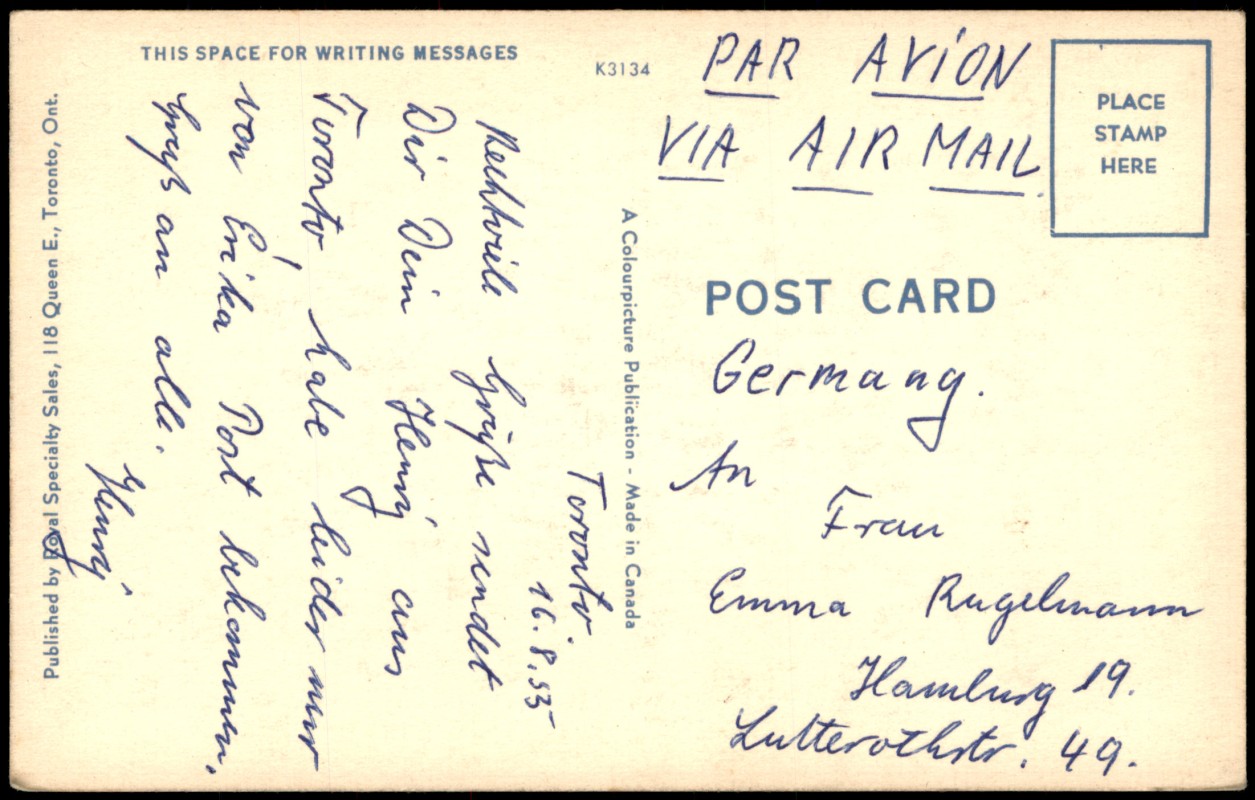 THIS SPACE FOR WRITING MESSAGES
K3134
Toronto
16.8.55
Recht viele Grüße sendet
Dir Dein Henry aus
Toronto, habe leider nur
von Erika Post bekommen.
Gruß an alle.
Henry
Published by Royal Specialty Sales, 118 Queen E., Toronto, Ont.
A Colourpicture Publication - Made in Canada
PAR AVION
VIA AIR MAIL
PLACE
STAMP
HERE
POST CARD
Germany.
An
Frau
Emma Rugelmann
Hamburg 19.
Lutterothstr. 49.